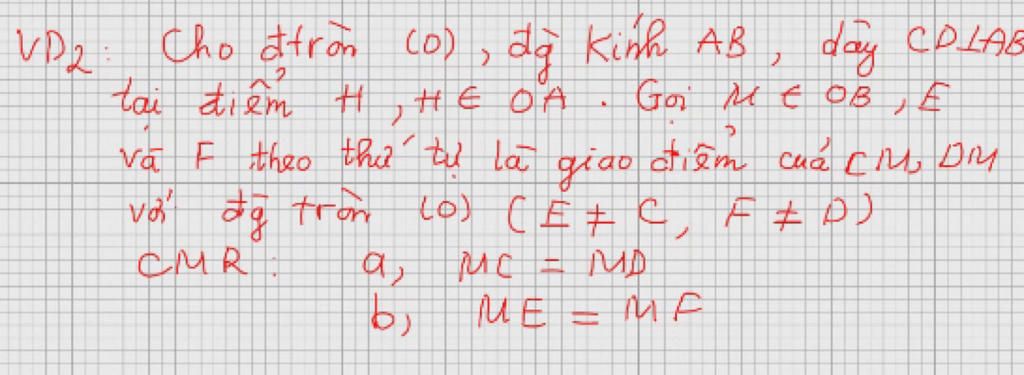 VD2: Cho đtròn (O), đg kính AB, dây CD⊥AB
tại điểm H, H ∈ OA. Gọi M ∈ OB, E
và F theo thứ tự là giao điểm của CM, DM
với đg tròn (O) (E ≠ C, F ≠ D)
CMR: a, MC = MD
b, ME = MF